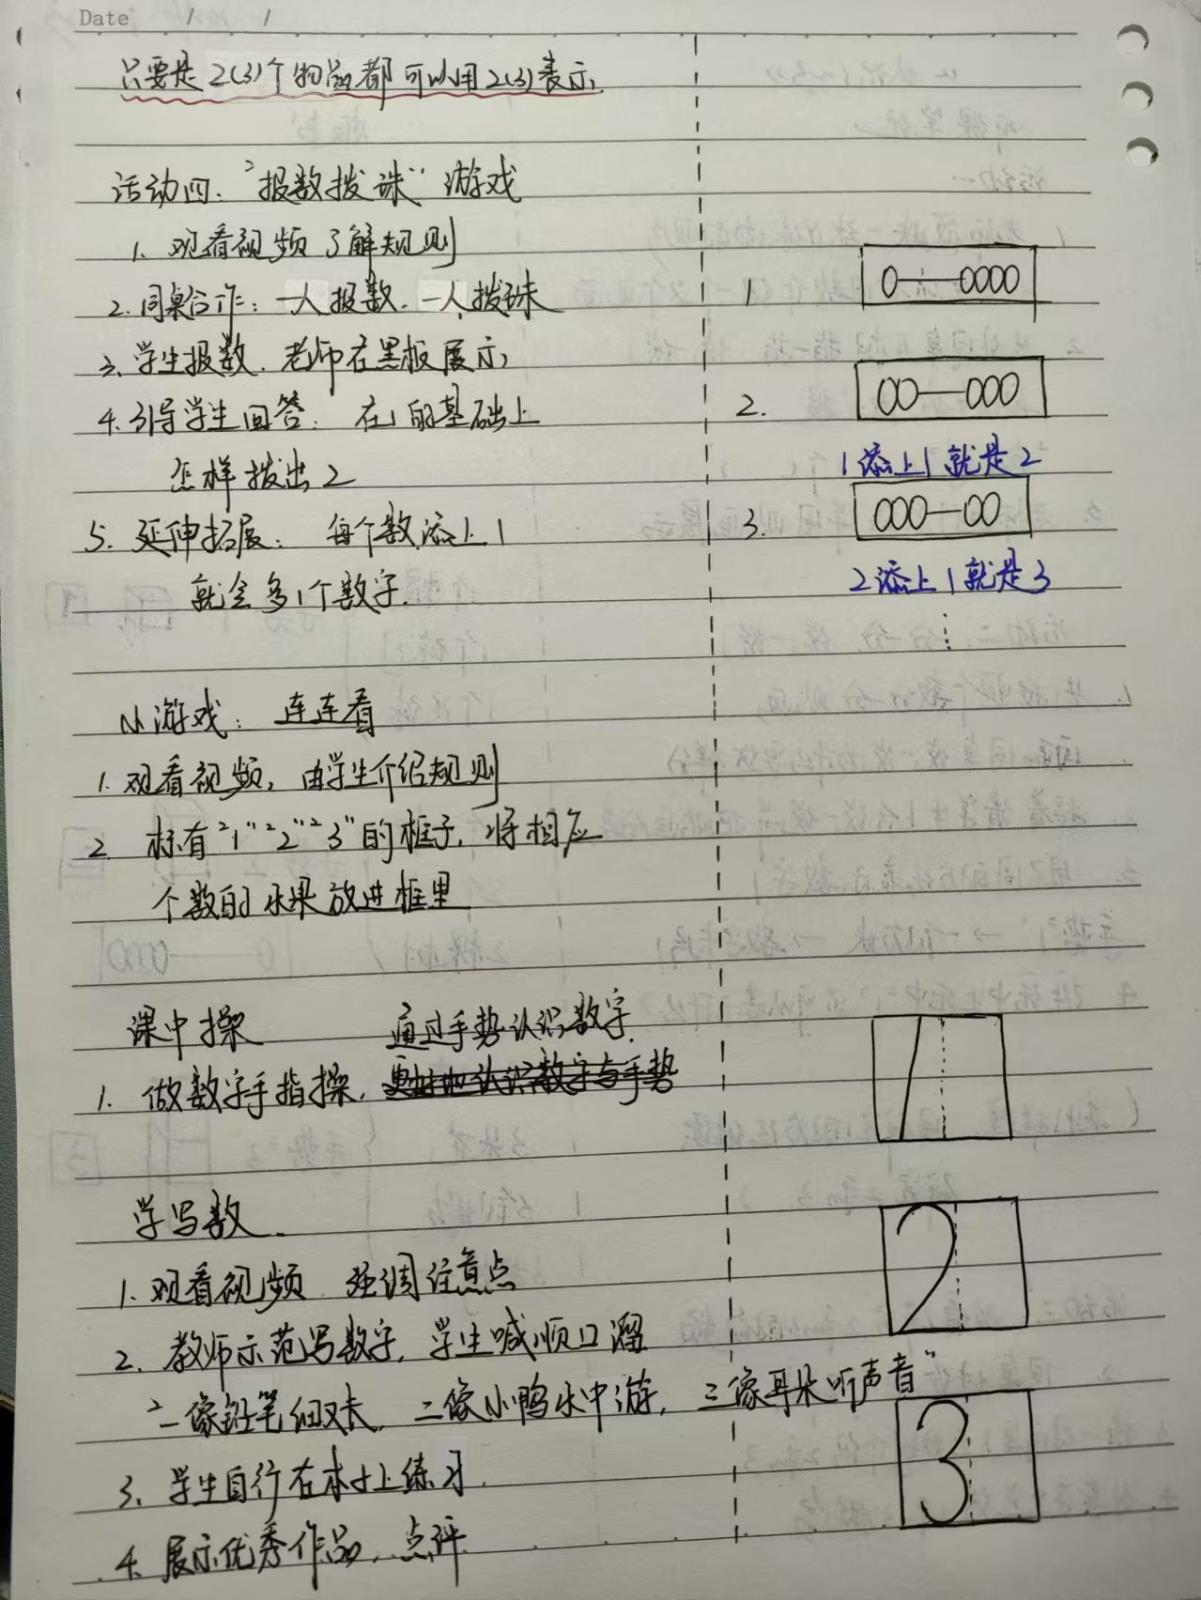 Date / /
只要是2(3)个物品都可以用2(3)表示
活动四:"报数拨珠"游戏
1. 观看视频 了解规则
2. 同桌合作:一人报数.一人拨珠
3. 学生报数.老师在黑板展示
4. 引导学生回答: 在1的基础上
怎样拨出2
5. 延伸拓展: 每个数添上1
就会多1个数字.
1
0——0000
2.
00—000
1添上1就是2
3.
000—00
2添上1就是3
⋮
小游戏: 连连看
1. 观看视频,由学生介绍规则
2. 标有"1""2""3"的框子,将相应
个数的水果放进框里
课中操 通过手势认识数字.
1. 做数字手指操,更好地认识数字与手势
1
学写数
1. 观看视频 强调注意点
2. 教师示范写数字,学生喊顺口溜
"一像铅笔细又长,二像小鸭水中游,三像耳朵听声音"
3. 学生自行在本子上练习.
4. 展示优秀作品,点评
2
3